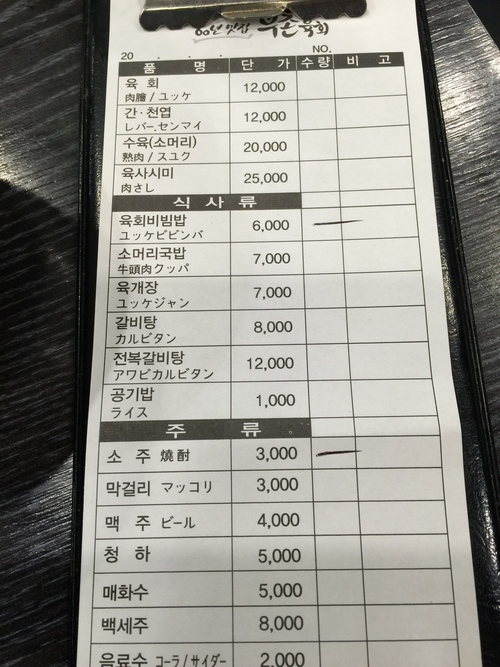 00년 맛집 부촌육회
20 . . . NO.
품 명 단 가 수량 비 고
육 회 12,000
肉膾 / ユッケ
간·천엽 12,000
レバー.センマイ
수육(소머리) 20,000
熟肉 / スユク
육사시미 25,000
肉さし
식 사 류
육회비빔밥 6,000
ユッケビビンバ
소머리국밥 7,000
牛頭肉クッパ
육개장 7,000
ユッケジャン
갈비탕 8,000
カルビタン
전복갈비탕 12,000
アワビカルビタン
공기밥 1,000
ライス
주 류
소 주 燒酎 3,000
막걸리 マッコリ 3,000
맥 주 ビール 4,000
청 하 5,000
매화수 5,000
백세주 8,000
음료수 コーラ/サイダー 2,000